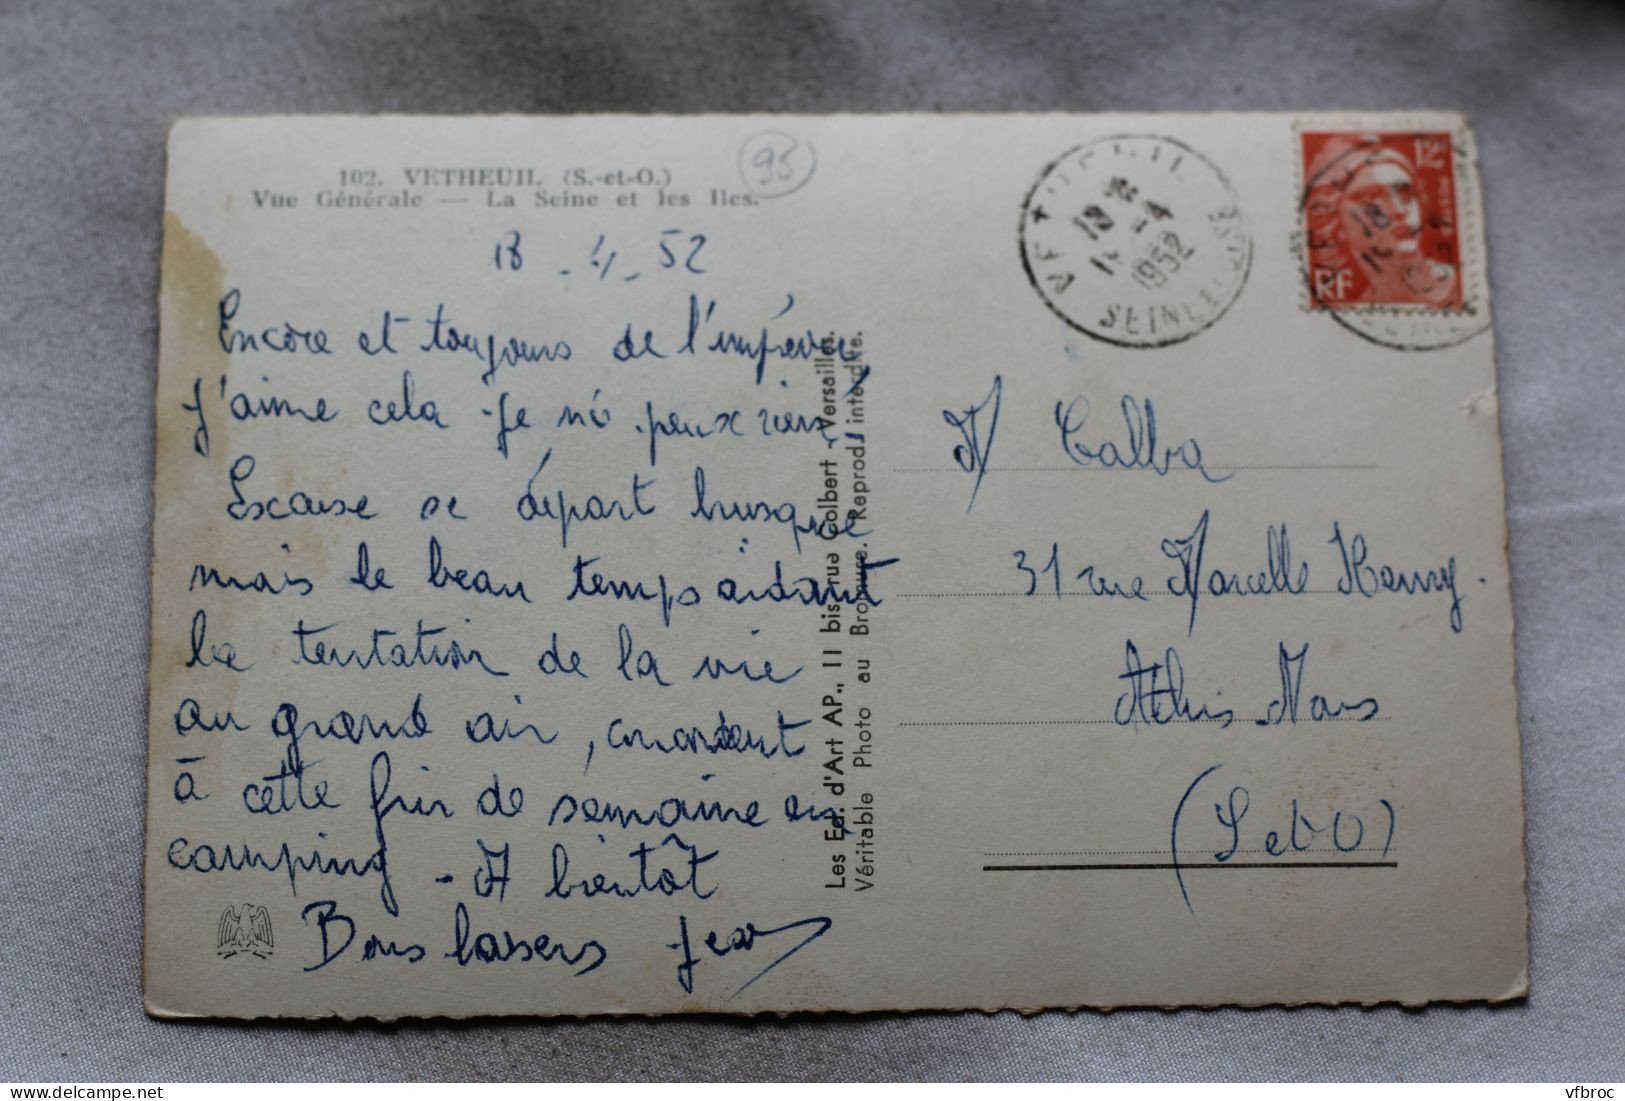 102. VETHEUIL (S.-et-O.)
Vue Générale — La Seine et les Iles.
95
18 - 4 - 52
Encore et toujours de l'imprévu
j'aime cela - Je n'y peux rien,
Excuse ce départ brusque
mais le beau temps aidant
la tentation de la vie
au grand air,
à cette fin de semaine en
camping - A bientôt
Bons baisers Jean
Les Ed. d'Art AP., 11 bis, rue Colbert - Versailles.
Véritable Photo au Bromure. Reprod. interdite.
VETHEUIL
18
1952
SEINE ET OISE
12F
RF
M Calba
31 rue Marcelle Henry.
Athis-Mons
(S et O)
vfbroc